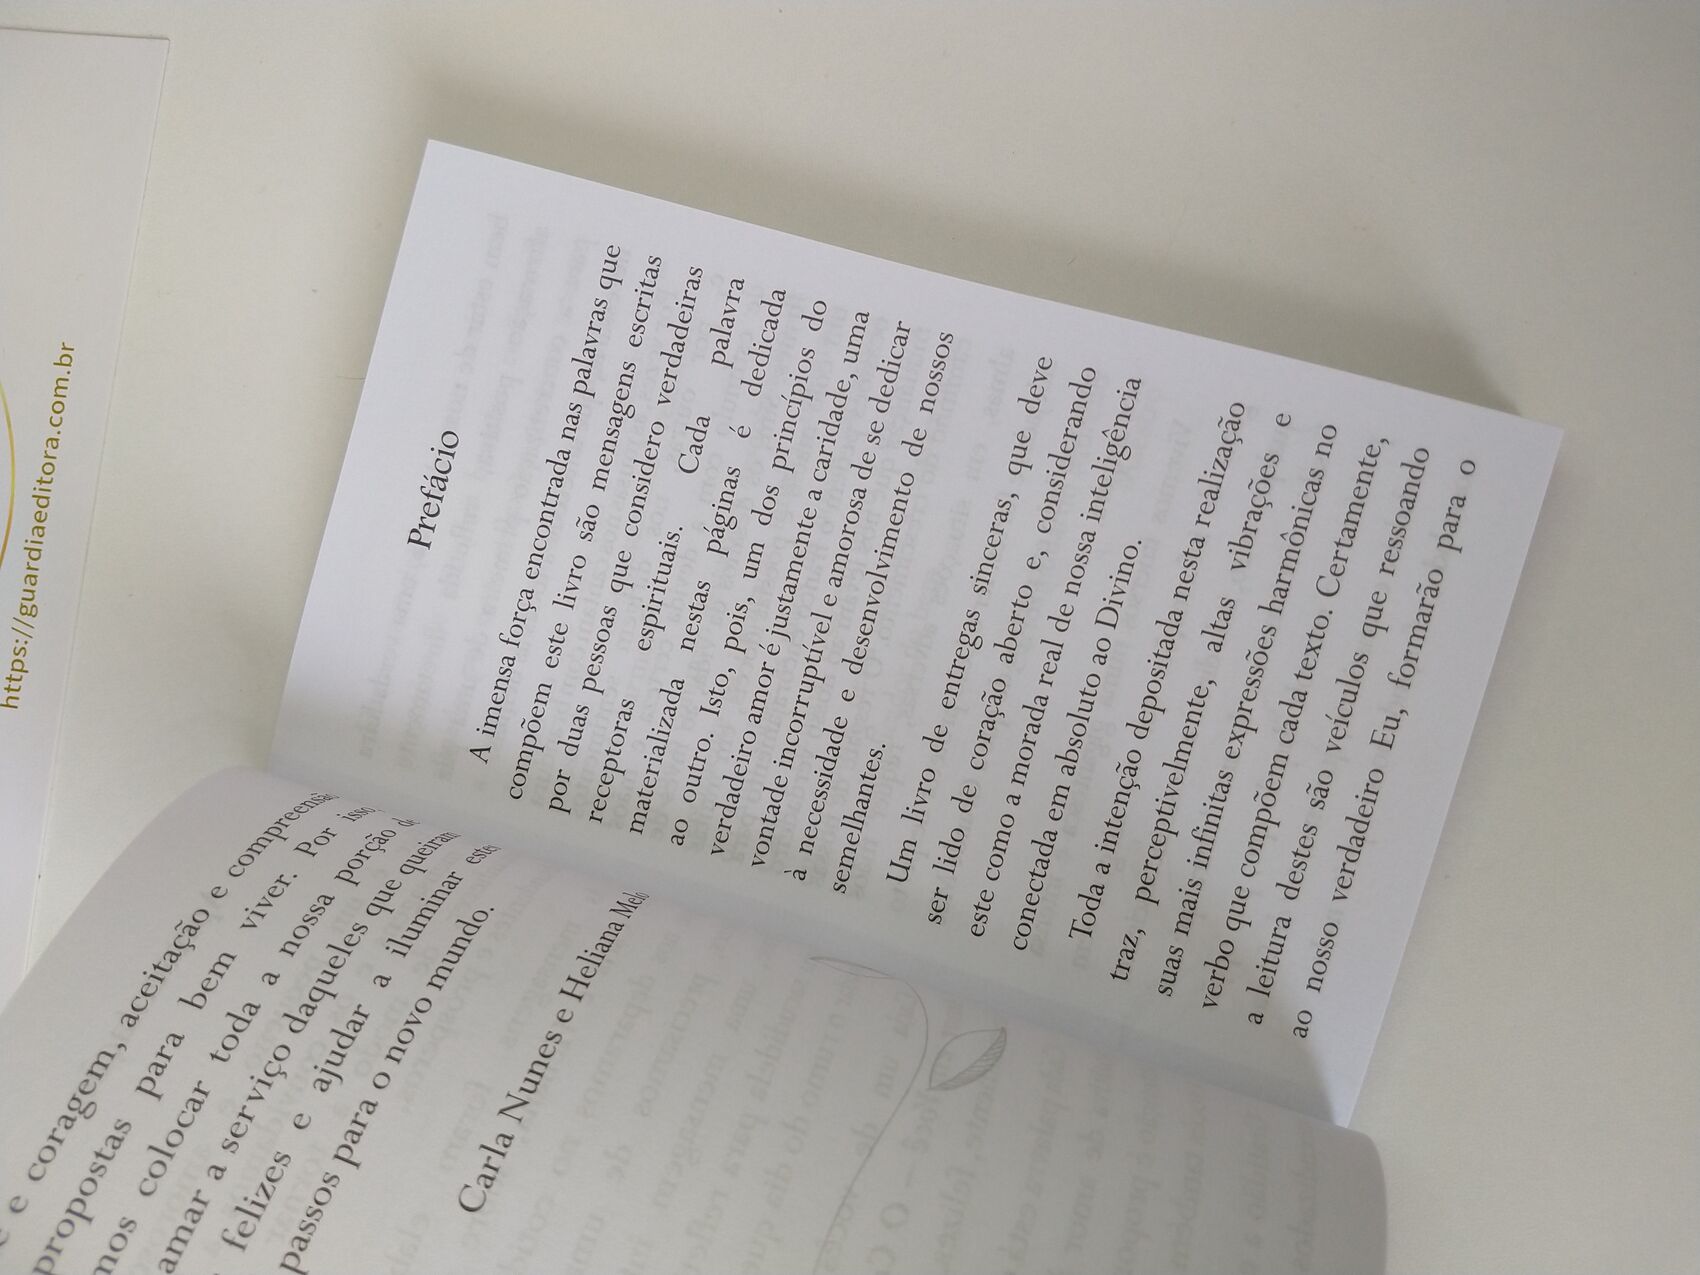 https://guardiaeditora.com.br
e coragem, aceitação e compreensão
propostas para bem viver. Por isso,
mos colocar toda a nossa porção de
amar a serviço daqueles que queiram
felizes e ajudar a iluminar
passos para o novo mundo.
Carla Nunes e Heliana Melo
Prefácio
A imensa força encontrada nas palavras que
compõem este livro são mensagens escritas
por duas pessoas que considero verdadeiras
receptoras espirituais. Cada palavra
materializada nestas páginas é dedicada
ao outro. Isto, pois, um dos princípios do
verdadeiro amor é justamente a caridade, uma
vontade incorruptível e amorosa de se dedicar
à necessidade e desenvolvimento de nossos
semelhantes.
Um livro de entregas sinceras, que deve
ser lido de coração aberto e, considerando
este como a morada real de nossa inteligência
conectada em absoluto ao Divino.
Toda a intenção depositada nesta realização
traz, perceptivelmente, altas vibrações e
suas mais infinitas expressões harmônicas no
verbo que compõem cada texto. Certamente,
a leitura destes são veículos que ressoando
ao nosso verdadeiro Eu, formarão para o